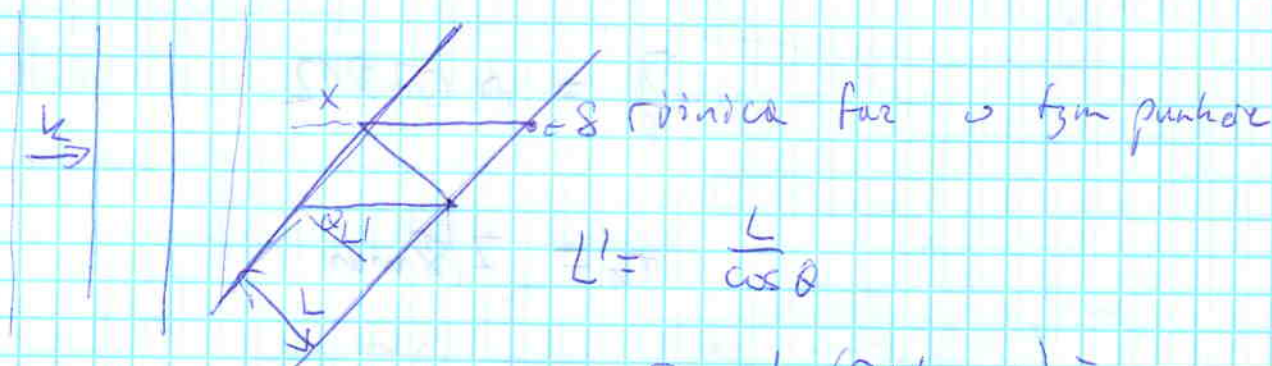 x ← δ różnica faz w tym punkcie
k
θ L' L' = L / cos θ
L